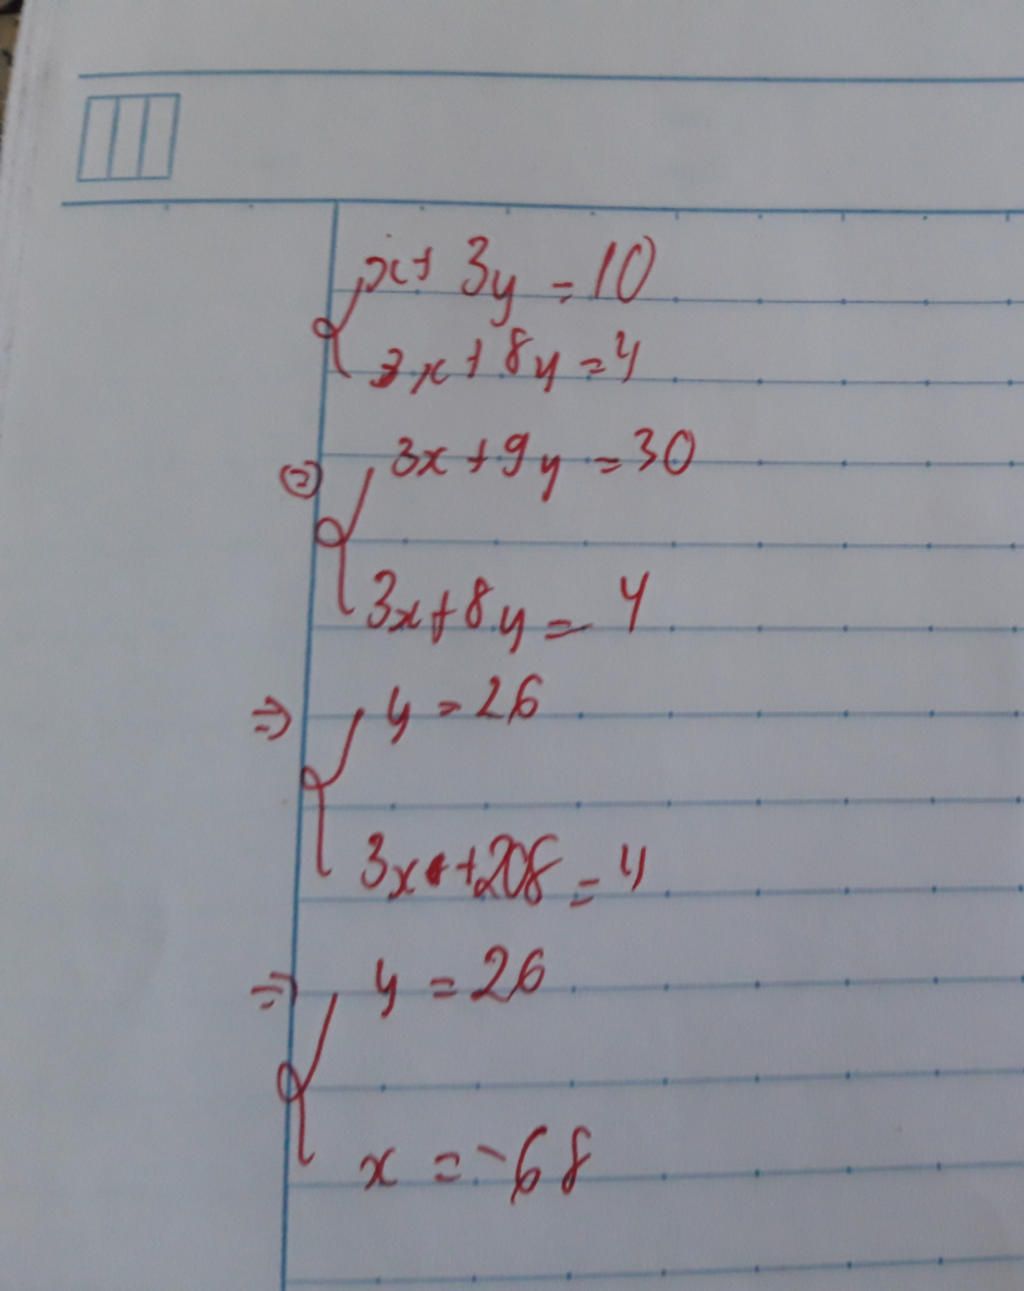 x + 3y = 10
3x + 8y = 4
⇔ 3x + 9y = 30
3x + 8y = 4
⇒ y = 26
3x + 208 = 4
⇒ y = 26
x = -68